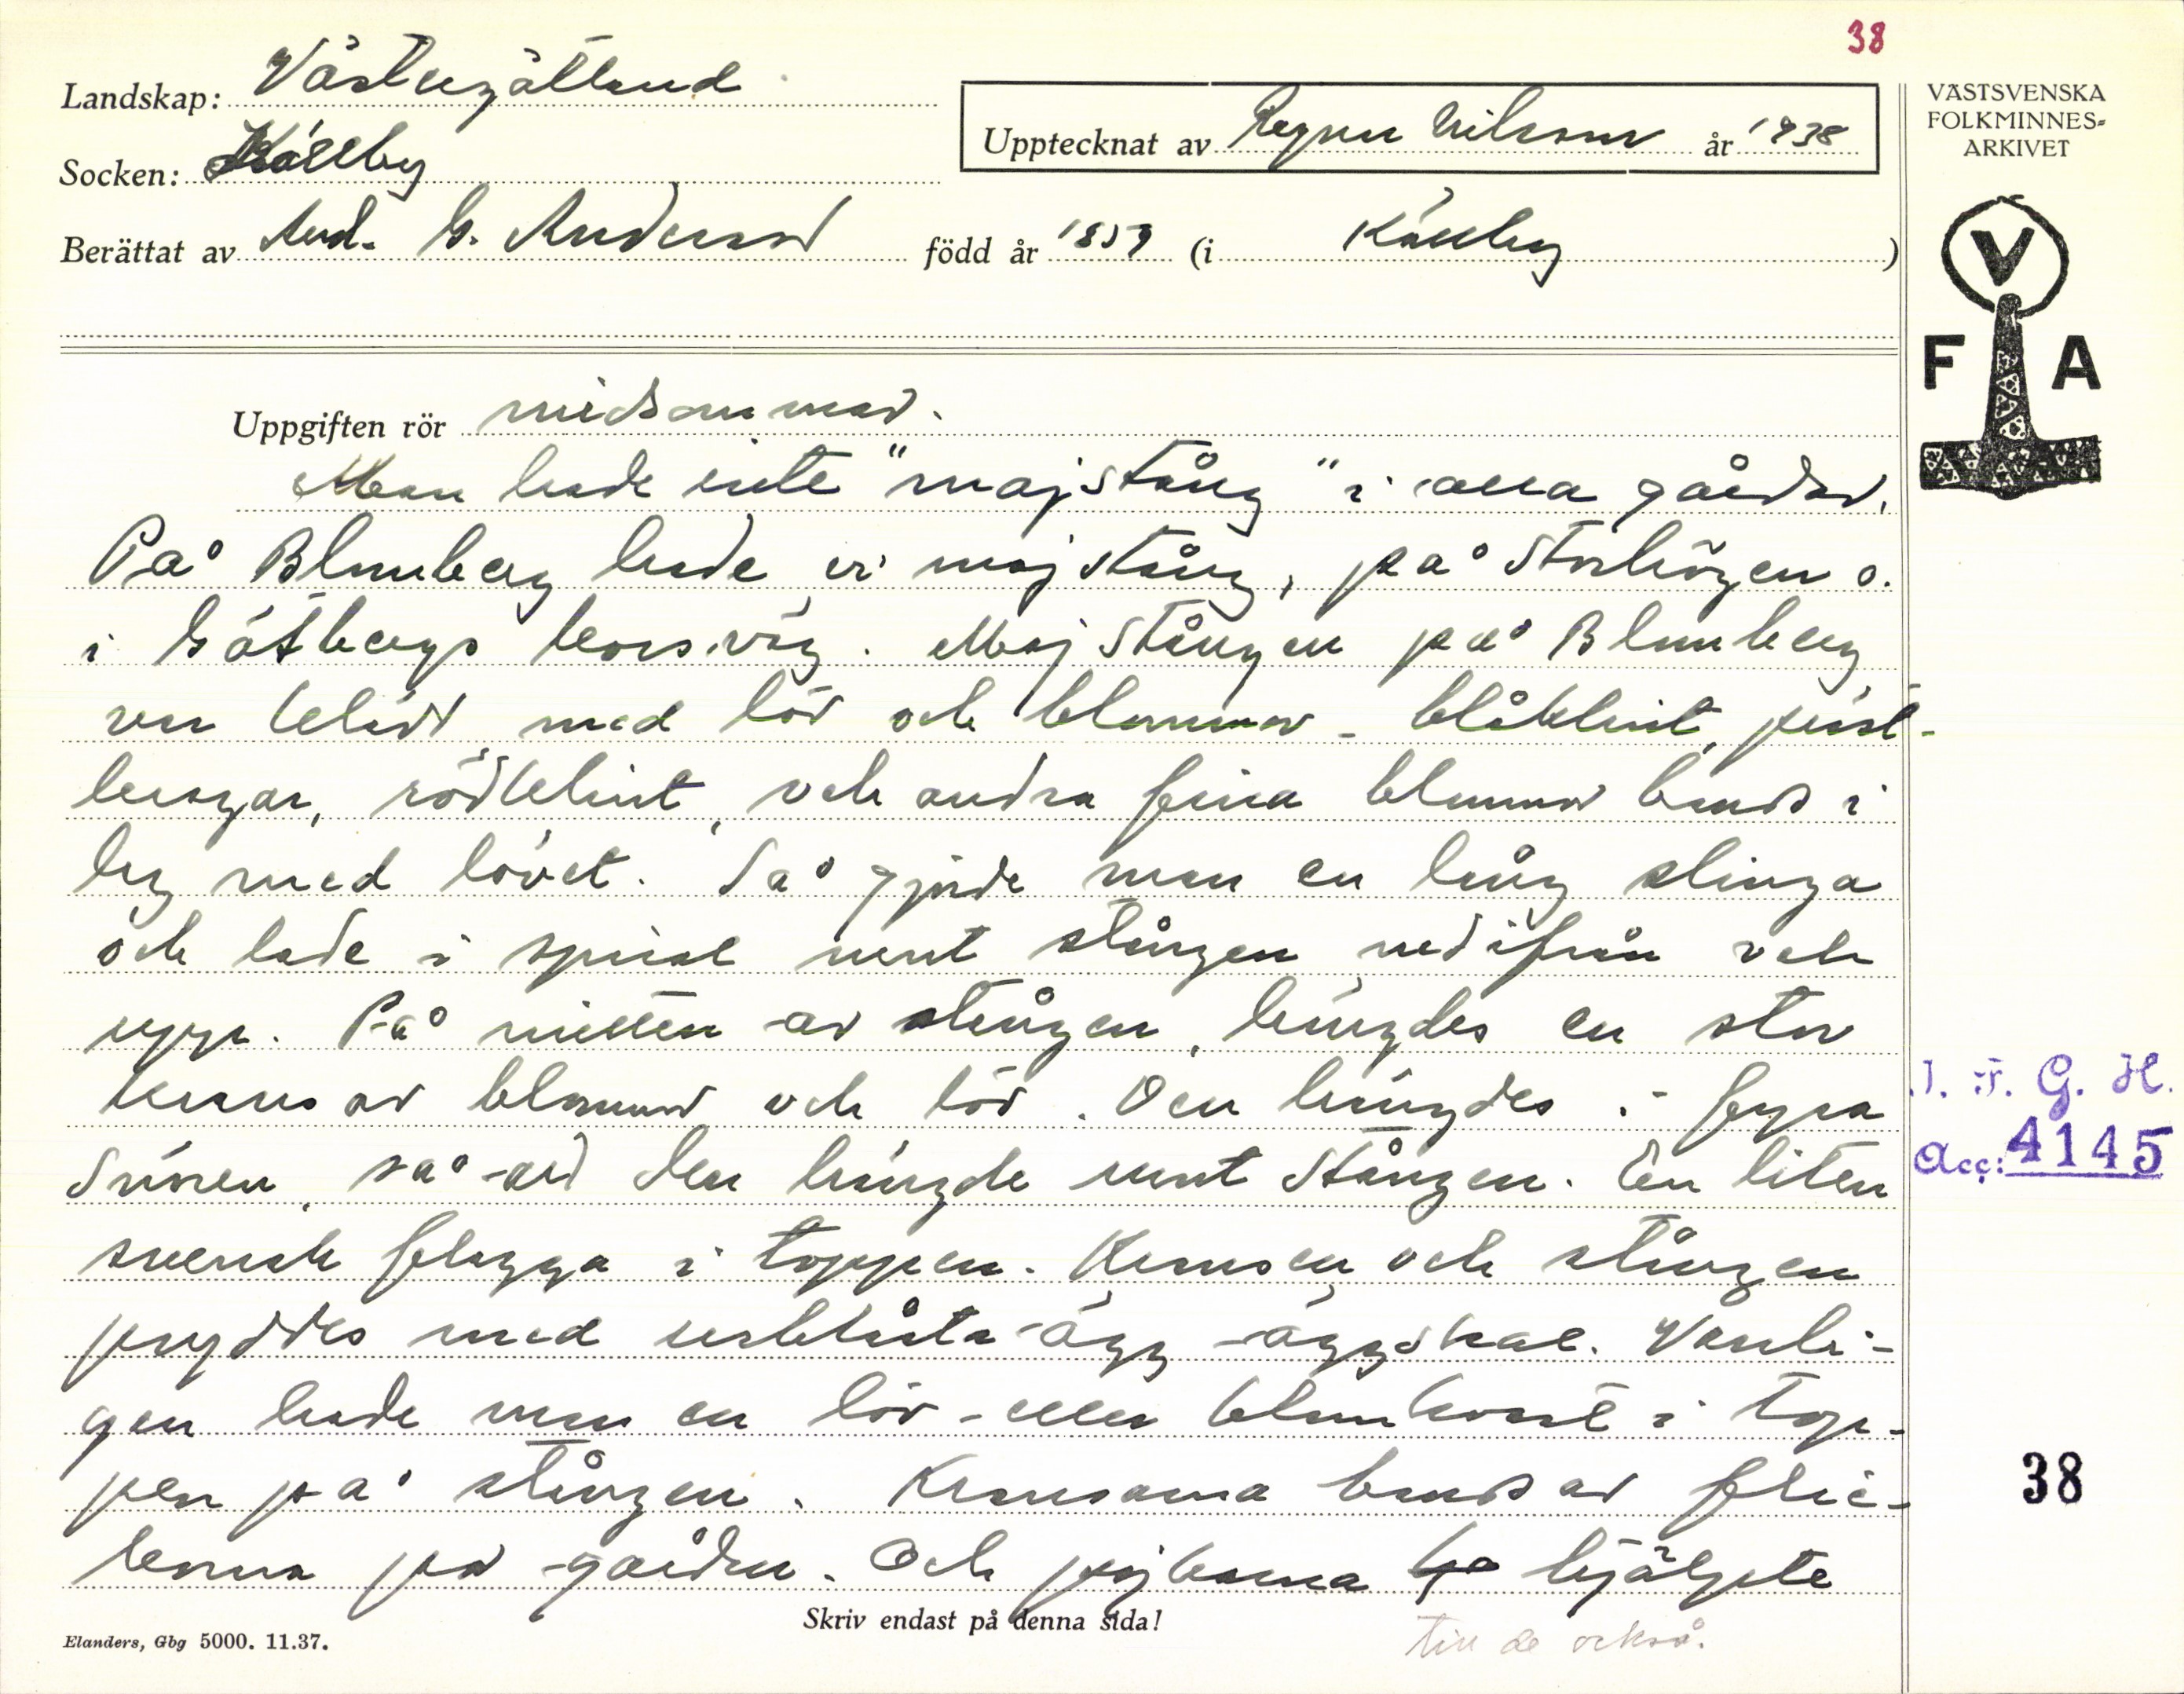 38
Landskap: Västergötland
Socken: Källby
Upptecknat av Ragnar Nilsson år 1938
Berättat av And. G. Andersson född år 1859 (i Källby)
VÄSTSVENSKA
FOLKMINNES=
ARKIVET
V
F A
Uppgiften rör midsommar.
Man hade inte "majstång" i alla gårdar.
På Blomberg hade vi majstång, på Storhögen o.
i korsväg. Majstången på Blomberg
var klädd med löv och blommor - blåklint, präst-
kragar, rödklint, och andra fina blommor bands i
hop med lövet. Så gjorde man en lång slinga
och lade i spiral runt stången nedifrån och
upp. På mitten av stången, hängdes en stor
krans av blommor och löv. Den hängdes i fyra
snören, så att den hängde runt stången. En liten
svensk flagga i toppen. Kransen och stången
pryddes med urblåsta ägg -äggskal. Vanli-
gen hade man en löv- eller blomkvast i top-
pen på stången. Kransarna bands av flic-
korna på gården. Och pojkarna hjälpte
till de också.
J. F. G. H.
Acc: 4145
38
Skriv endast på denna sida!
Elanders, Gbg 5000. 11.37.